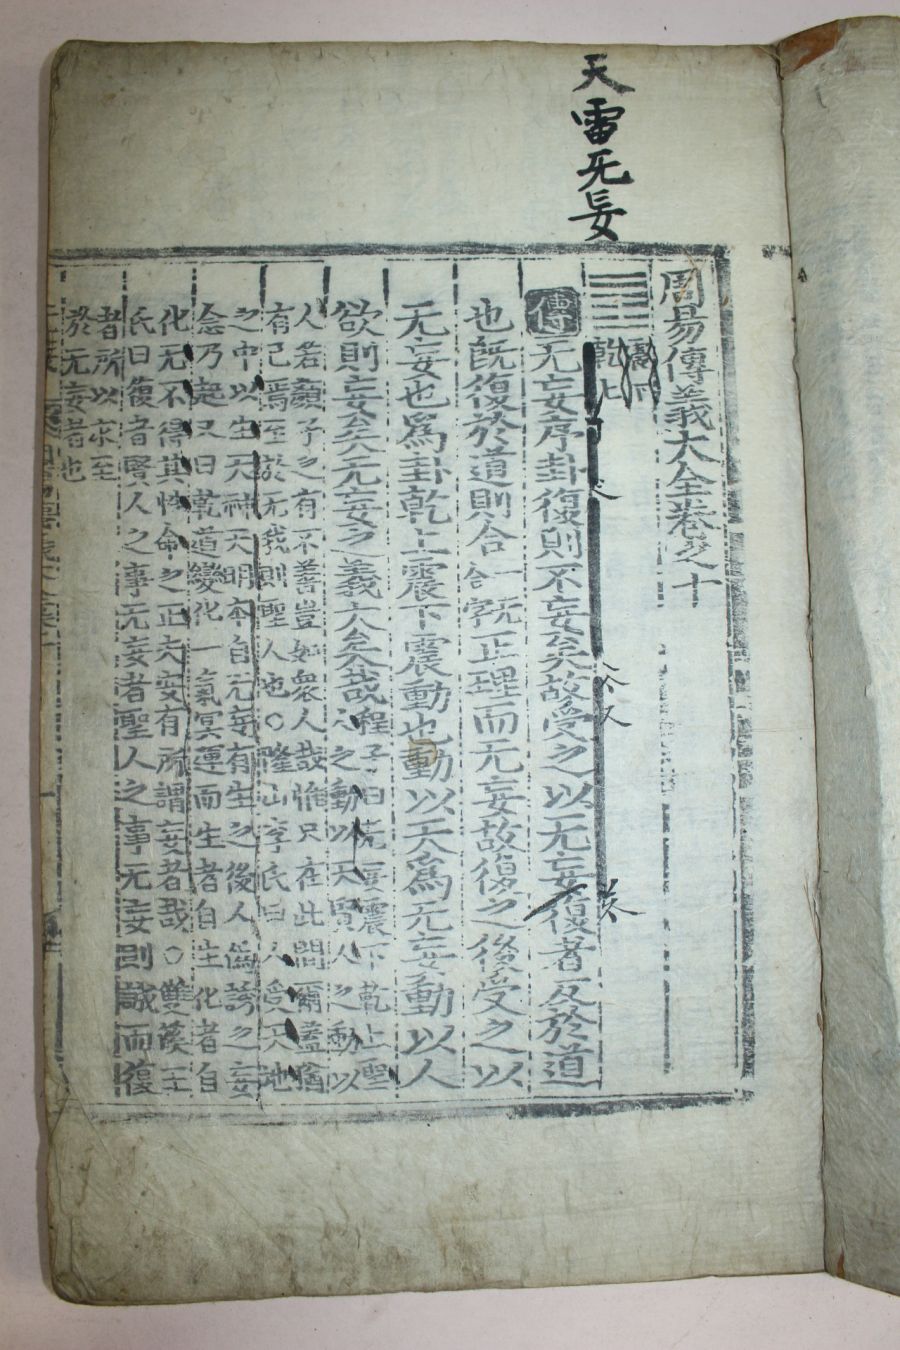 天雷无妄
周易傳義大全卷之十
震下
乾上
傳 无妄序卦復則不妄矣故受之以无妄復者反於道
也旣復於道則合正理而无妄故復之後受之以
无妄也爲卦乾上震下震動也動以天爲无妄動以人
欲則妄矣无妄之義大矣哉
程子曰无妄震下乾上聖
人之動以天賢人之動以
人若顔子之有不善豈如衆人哉惟只在此間爾蓋猶
有己焉至於无我則聖人也○隆山李氏曰人受天地
之中以生天神天明本自无妄有生之後人僞誘之妄
念乃起又曰乾道變化一氣冥運而生者自生化者自
化无不得其性命之正夫安有所謂妄者哉○雙湖王
氏曰復者賢人之事无妄者聖人之事无妄則誠而復
者所以求至
於无妄者也